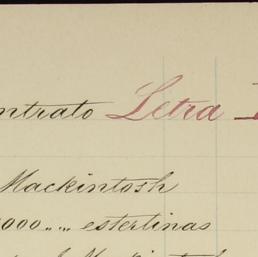 ntrato Letra
Mackintosh
000.,., esterlinas
Mackintosh